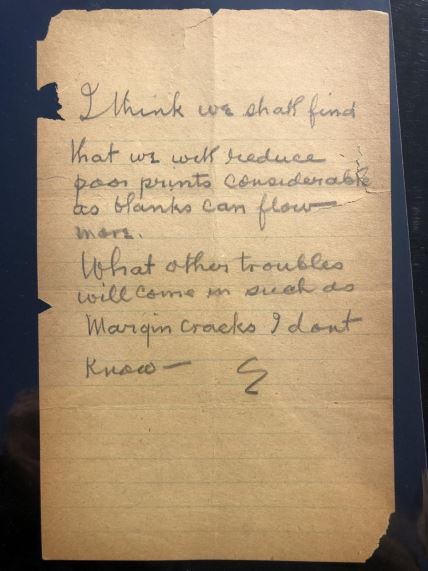 I think we shall find
that we will reduce
poor prints considerable
as blanks can flow
more.
What other troubles
will come in such as
Margin cracks I dont
know —
E